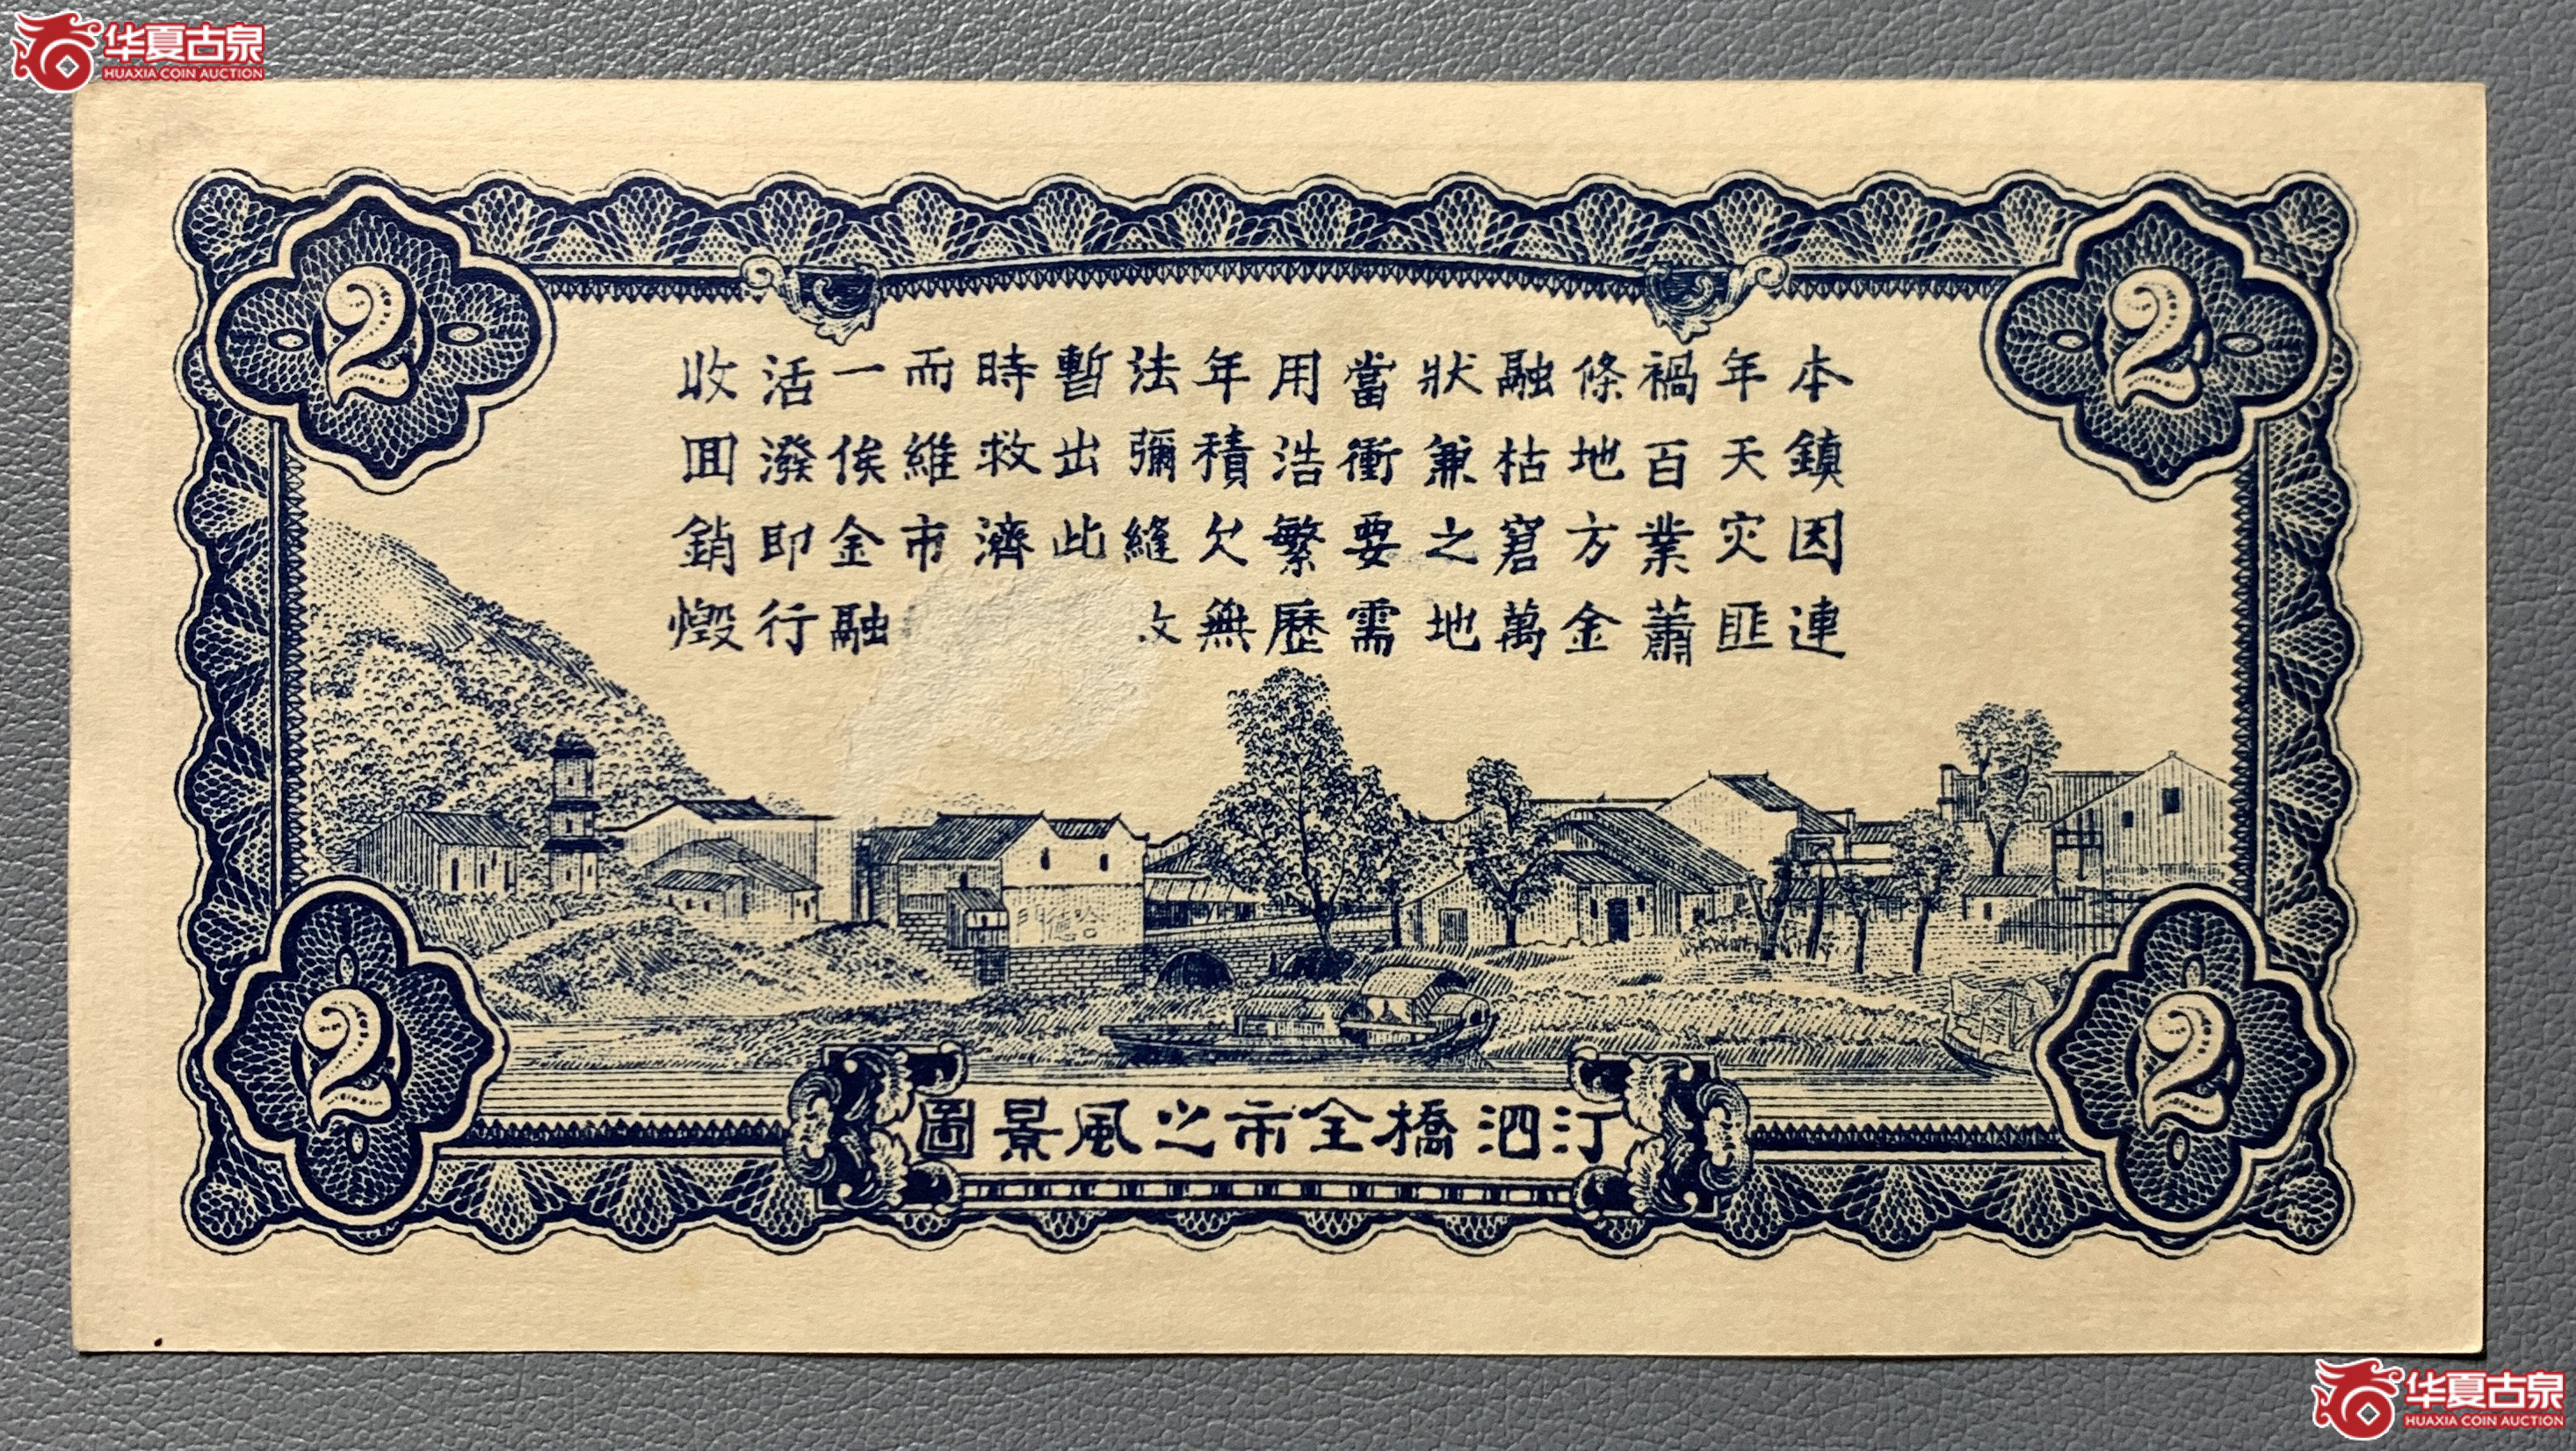 华夏古泉
HUAXIA COIN AUCTION
2
2
本鎮因連
年天灾匪
禍百業蕭
條地方金
融枯窘萬
狀兼之地
當衝要需
用浩繁歷
年積欠無
法彌縫
暫出此
時救濟
而維市
一俟金融
活潑即行
收囬銷燬
哈德門
2
2
汀泗橋全市之風景圖
华夏古泉
HUAXIA COIN AUCTION